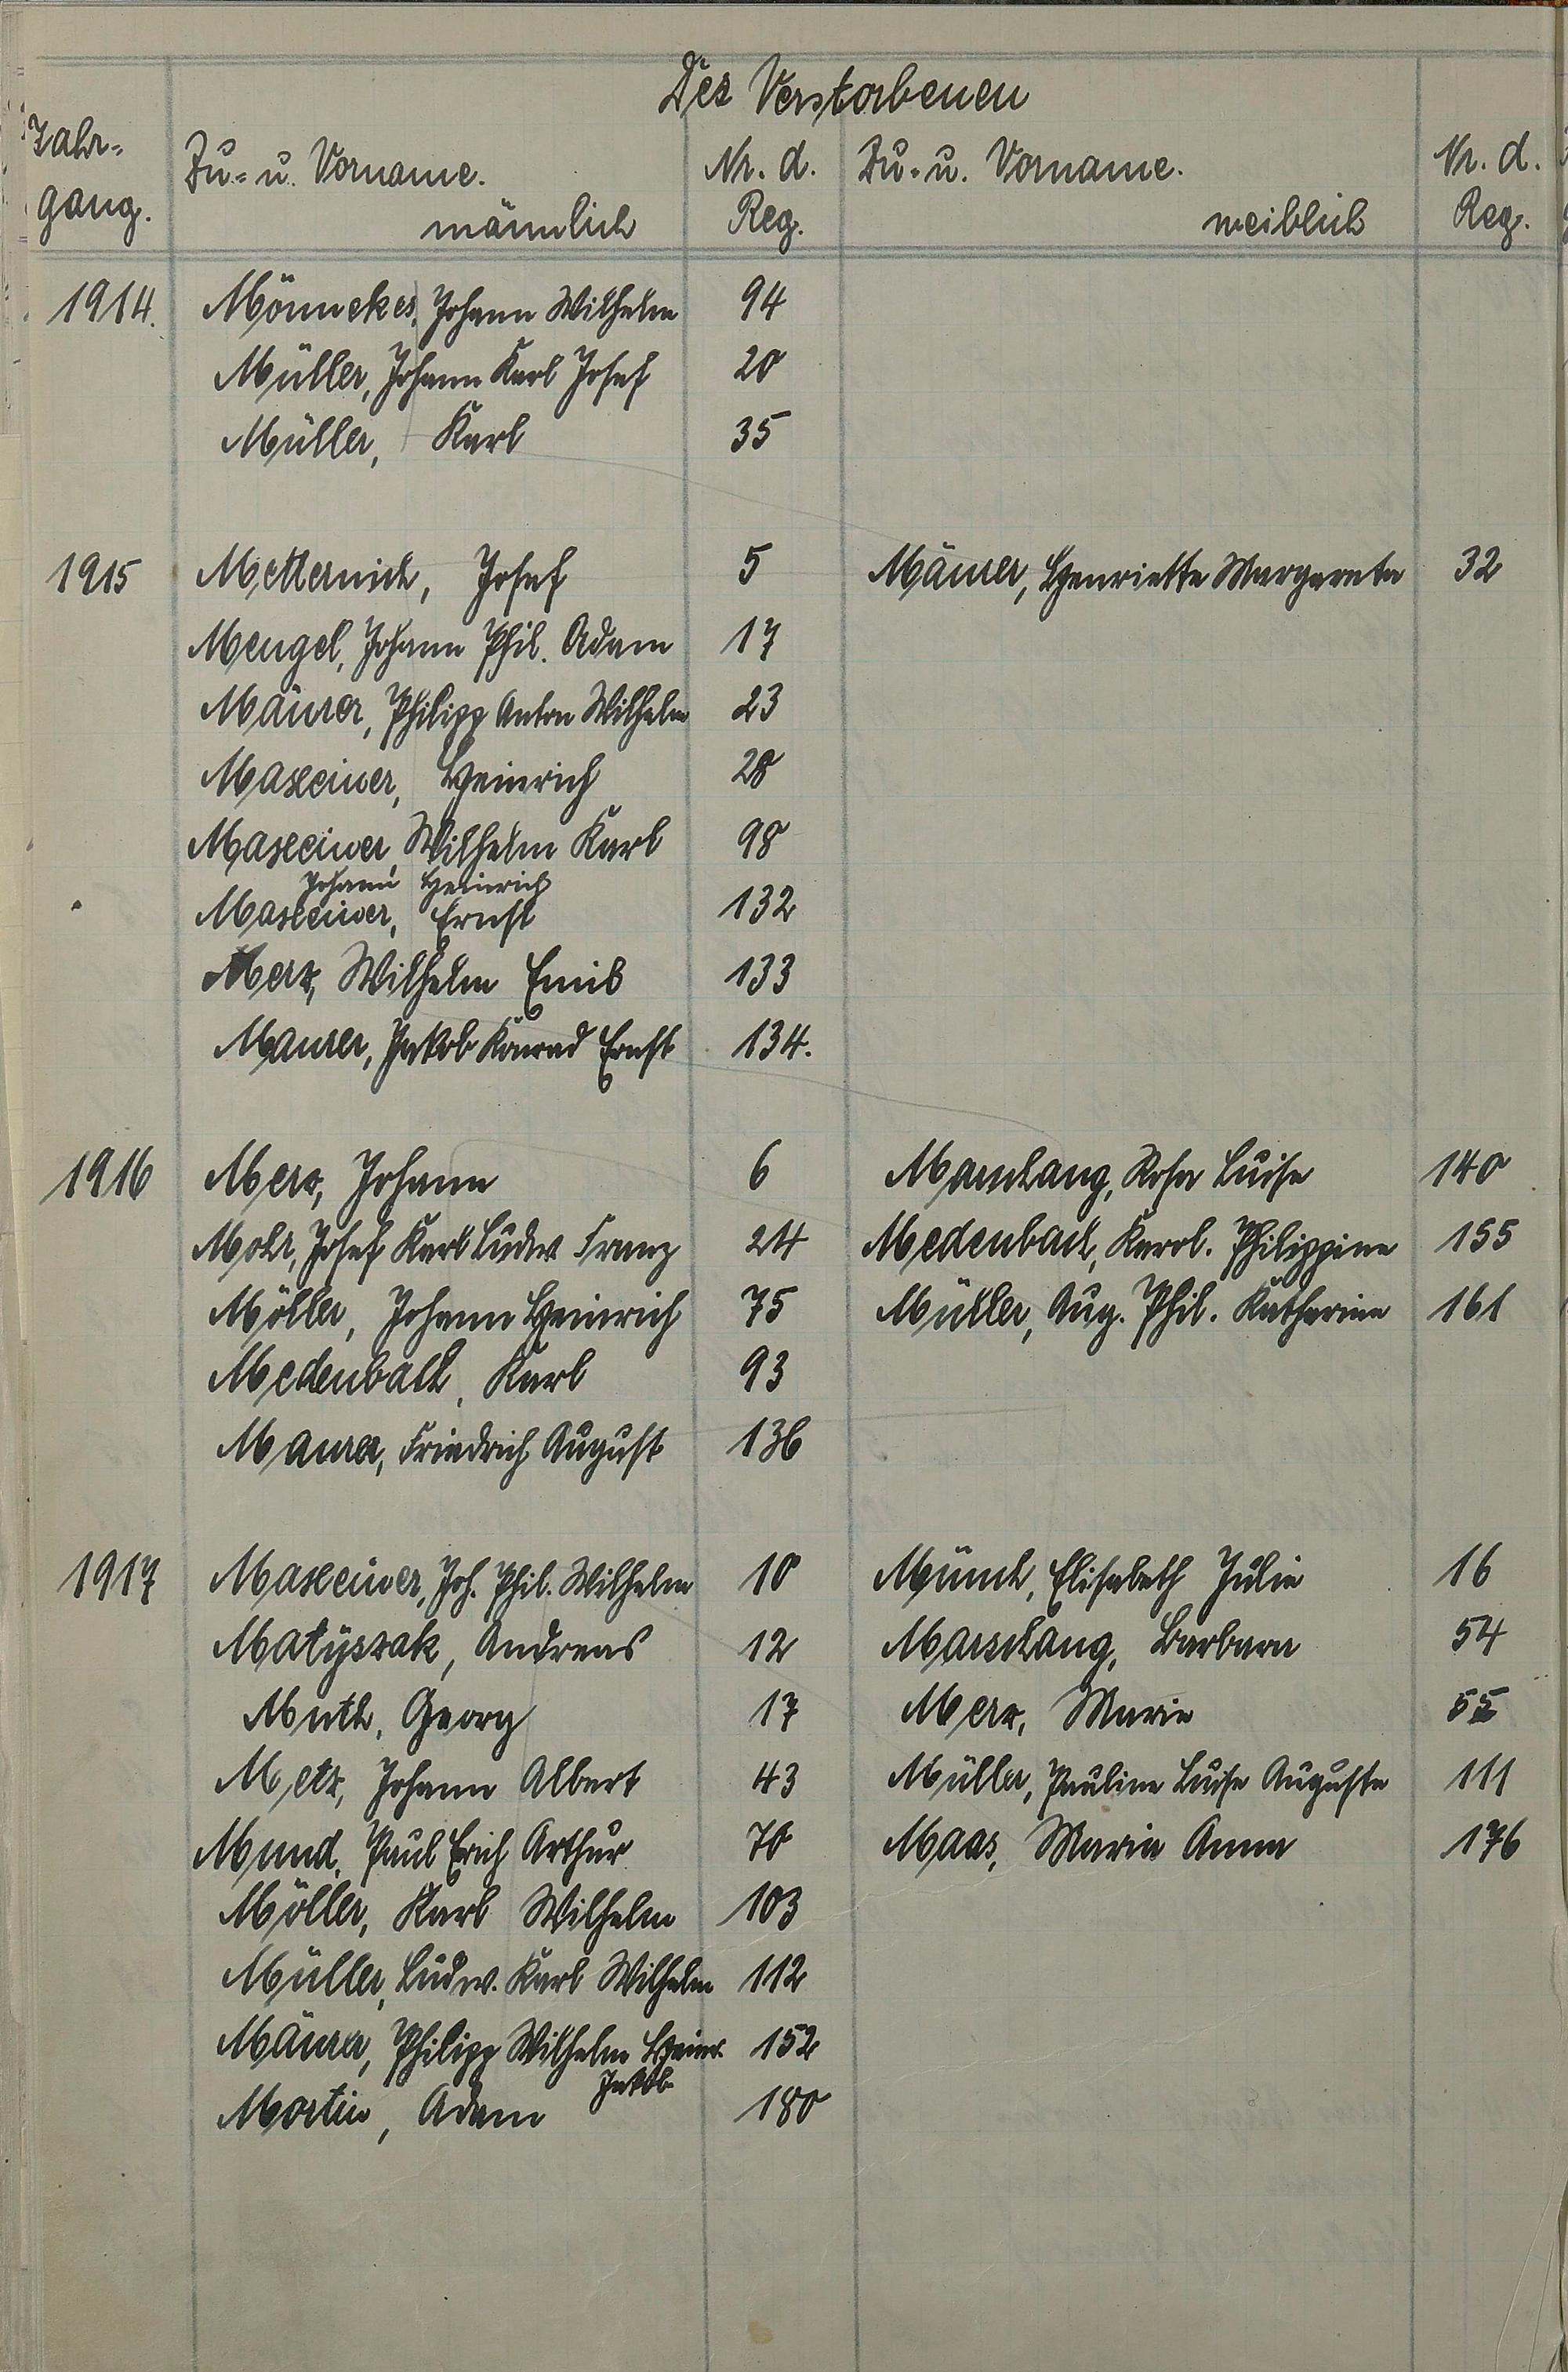 Des Verstorbenen
Jahr-
gang.
Zu- u. Vorname.
männlich
Nr. d.
Reg.
Zu- u. Vorname.
weiblich
Nr. d.
Reg.
1914. Mönnekes, Johann Wilhelm 94
Müller, Johann Karl Josef 20
Müller, Karl 35
1915 Metternich, Josef 5 Mäurer, Henriette Margareta 32
Mengel, Johann Phil. Adam 17
Mäurer, Philipp Anton Wilhelm 23
Maxeiner, Heinrich 28
Maxeiner, Wilhelm Karl 98
Johann Heinrich
Maxeiner, Ernst 132
Merz, Wilhelm Emil 133
Maurer, Jakob Konrad Ernst 134.
1916 Merz, Johann 6 Marschang, Rosa Luise 140
Mohr, Josef Karl Ludw. Franz 24 Medenbach, Karol. Philippine 155
Möller, Johann Heinrich 75 Müller, Aug. Phil. Katharine 161
Medenbach, Karl 93
Maurer, Friedrich August 136
1917 Maxeiner, Joh. Phil. Wilhelm 10 Münch, Elisabeth Julie 16
Matyszak, Andreas 12 Marschang, Barbara 54
Muth, Georg 17 Merz, Marie 55
Metz, Johann Albert 43 Müller, Pauline Luise Auguste 111
Mund, Paul Erich Arthur 70 Maas, Maria Anna 176
Möller, Karl Wilhelm 103
Müller, Ludw. Karl Wilhelm 112
Mäurer, Philipp Wilhelm Heinr. 152
Jakob
Martin, Adam 180